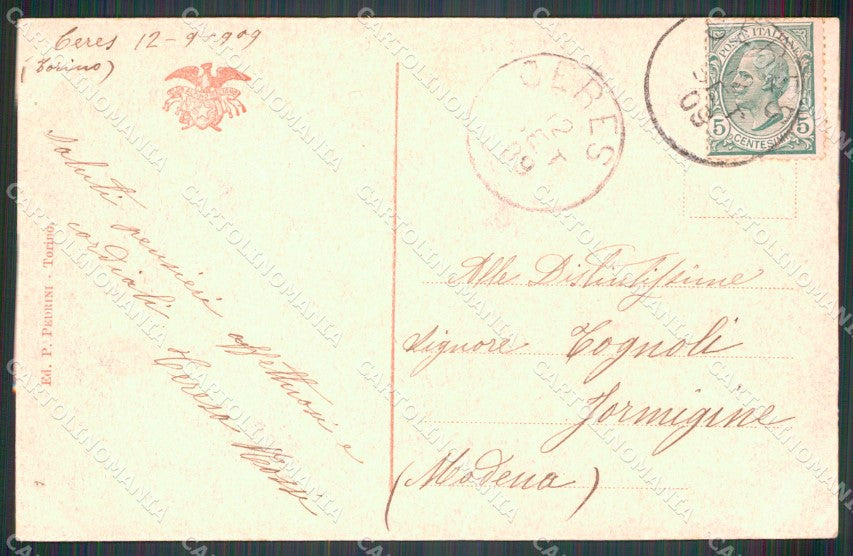 Ceres 12-9-909
(Torino)
Saluti pensieri affettuosi e
cordiali Teresa
Ed. P. Pedrini - Torino.
CERES
12
SET
09
POSTE ITALIANE
5 CENTESIMI 5
SET
09
Alle Distintissime
Signore Tognoli
Formigine
(Modena)
CARTOLINOMANIA